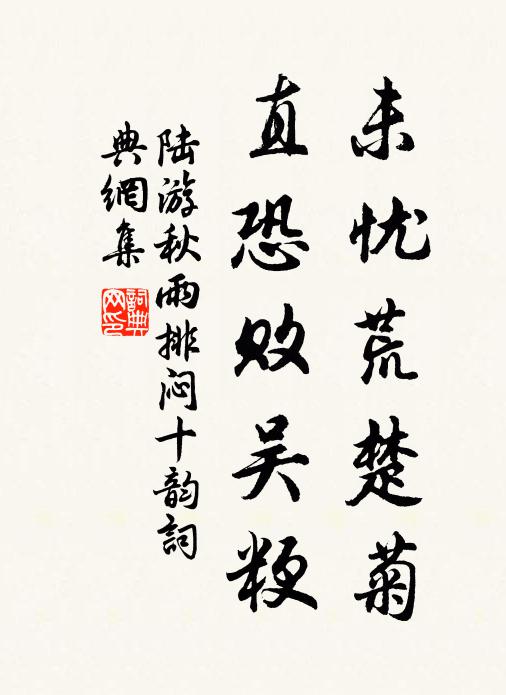 未忧荒楚菊
直恐败吴粳
陆游秋雨排闷十韵詞
典網集
詞典网印